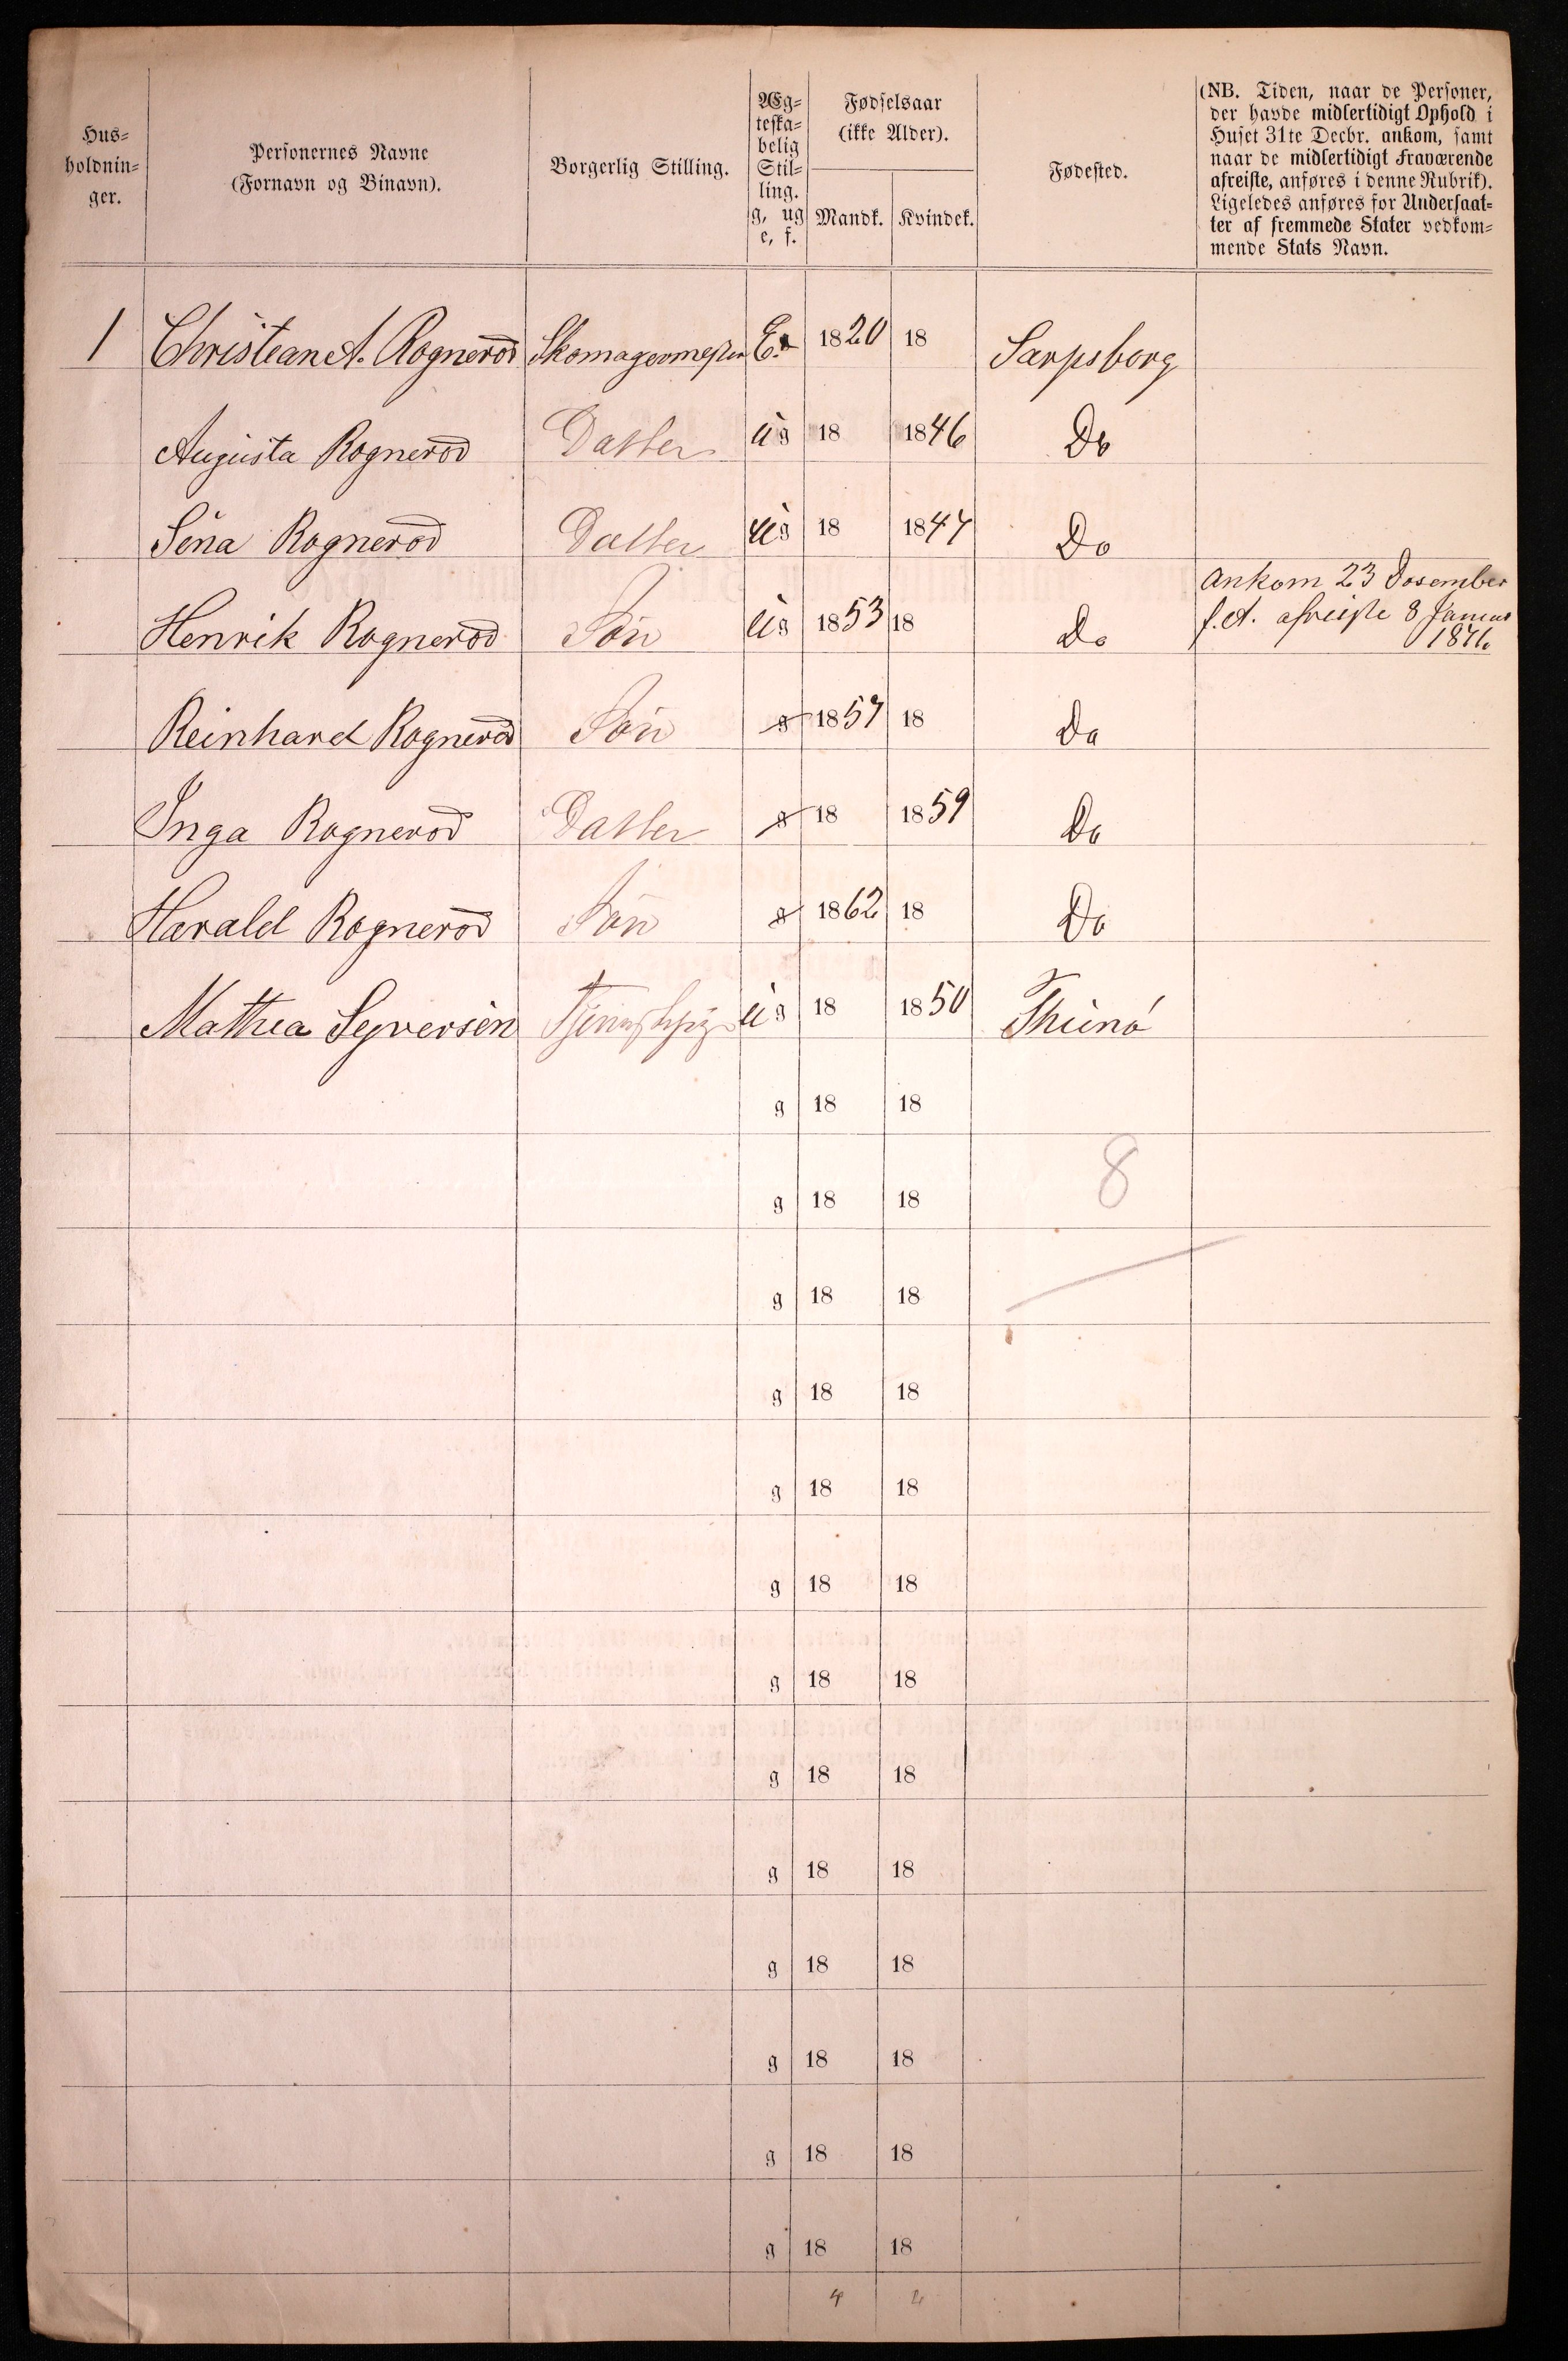 Hus-
holdnin-
ger.
Personernes Navne
(Fornavn og Binavn).
Borgerlig Stilling.
Æg-
teska-
belig
Stil-
ling.
g, ug
e, f.
Fødselsaar
(ikke Alder).
Mandk. Kvindek.
Fødested.
(NB. Tiden, naar de Personer,
der havde midlertidigt Ophold i
Huset 31te Decbr. ankom, samt
naar de midlertidigt Fraværende
afreiste, anføres i denne Rubrik).
Ligeledes anføres for Undersaat-
ter af fremmede Stater vedkom-
mende Stats Navn.
1 Christian A. Rognerød Skomagermester E. 1820 18 Sarpsborg
Augusta Rognerød Datter ug 18 1846 Do
Sina Rognerød Datter ug 18 1847 Do
Henrik Rognerød Søn ug 1853 18 Do
Ankom 23 Desember
f.A. afreiste 8 Januar
1876
Reinhard Rognerød Søn g 1857 18 Do
Inga Rognerød Datter g 18 1859 Do
Harald Rognerød Søn g 1862 18 Do
Mathea Syversen ug 18 1850 Thunø
g 18 18
g 18 18
8
g 18 18
g 18 18
g 18 18
g 18 18
g 18 18
g 18 18
g 18 18
g 18 18
g 18 18
g 18 18
g 18 18
4